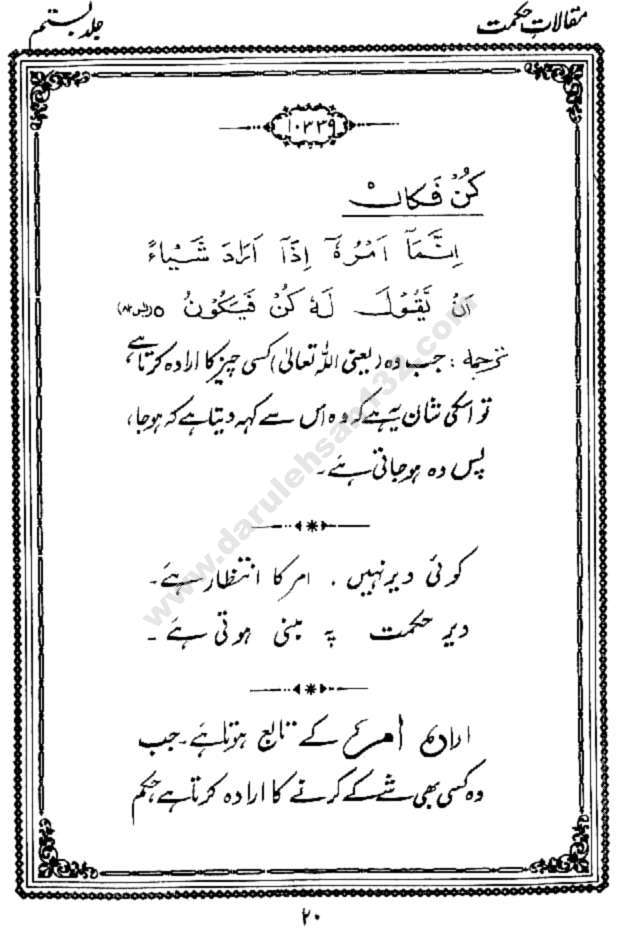 مقالاتِ حکمت
جلد بستم
۱۰۳۳۹
کُنْ فَکَانَ
اِنَّمَآ اَمْرُہٗٓ اِذَآ اَرَادَ شَیْـاءً
اَنْ یَّقُوْلَ لَہٗ کُنْ فَیَکُوْنُ ٥ (یٰس ۸۲)
ترجمہ : جب وہ (یعنی اللہ تعالیٰ) کسی چیز کا ارادہ کرتا ہے،
تو اسکی شان یہ ہے کہ وہ اُس سے کہہ دیتا ہے کہ ہو جا،
پس وہ ہو جاتی ہے۔
کوئی دیر نہیں ۔ امر کا انتظار ہے۔
دیر حکمت پہ مبنی ہوتی ہے ۔
ارادہ امر کے تابع ہوتا ہے۔ جب
وہ کسی بھی شے کے کرنے کا ارادہ کرتا ہے، حکم
۲۰
www.darulehsan132.com